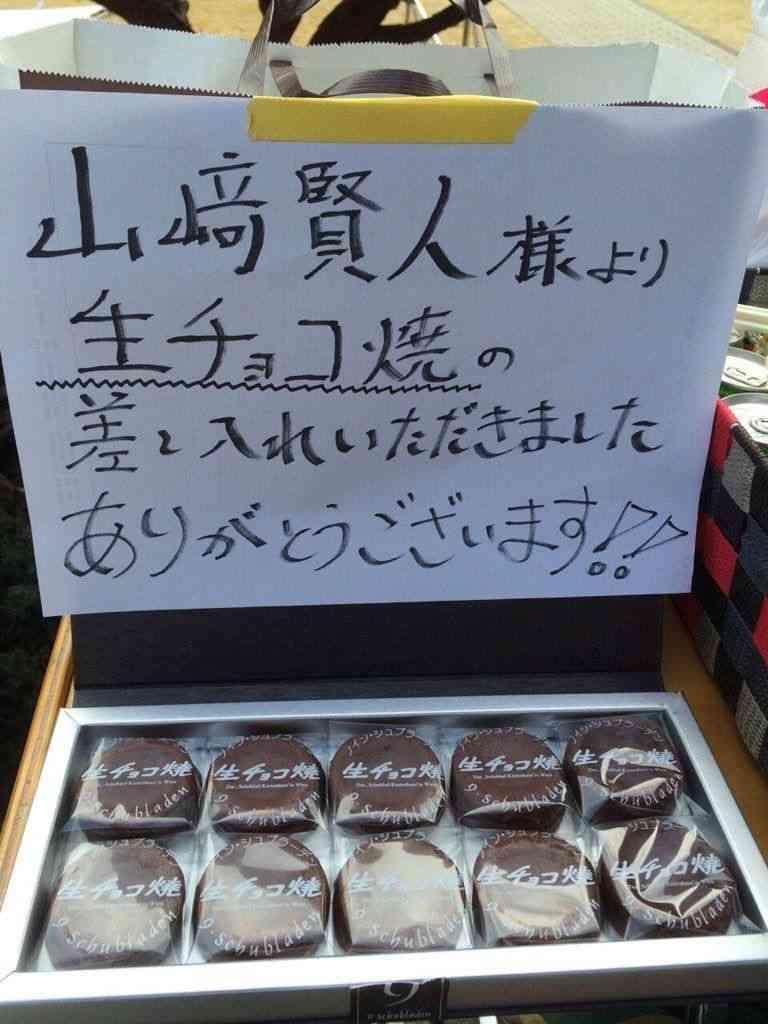 山﨑賢人様より
生チョコ焼の
差し入れいただきました
ありがとうございます!!
生チョコ焼
9.schubladen
生チョコ焼
9.schubladen
生チョコ焼
9.schubladen
生チョコ焼
9.schubladen
生チョコ焼
9.schubladen
生チョコ焼
9.schubladen
生チョコ焼
9.schubladen
生チョコ焼
9.schubladen
生チョコ焼
9.schubladen
生チョコ焼
9.schubladen
9
9.schubladen